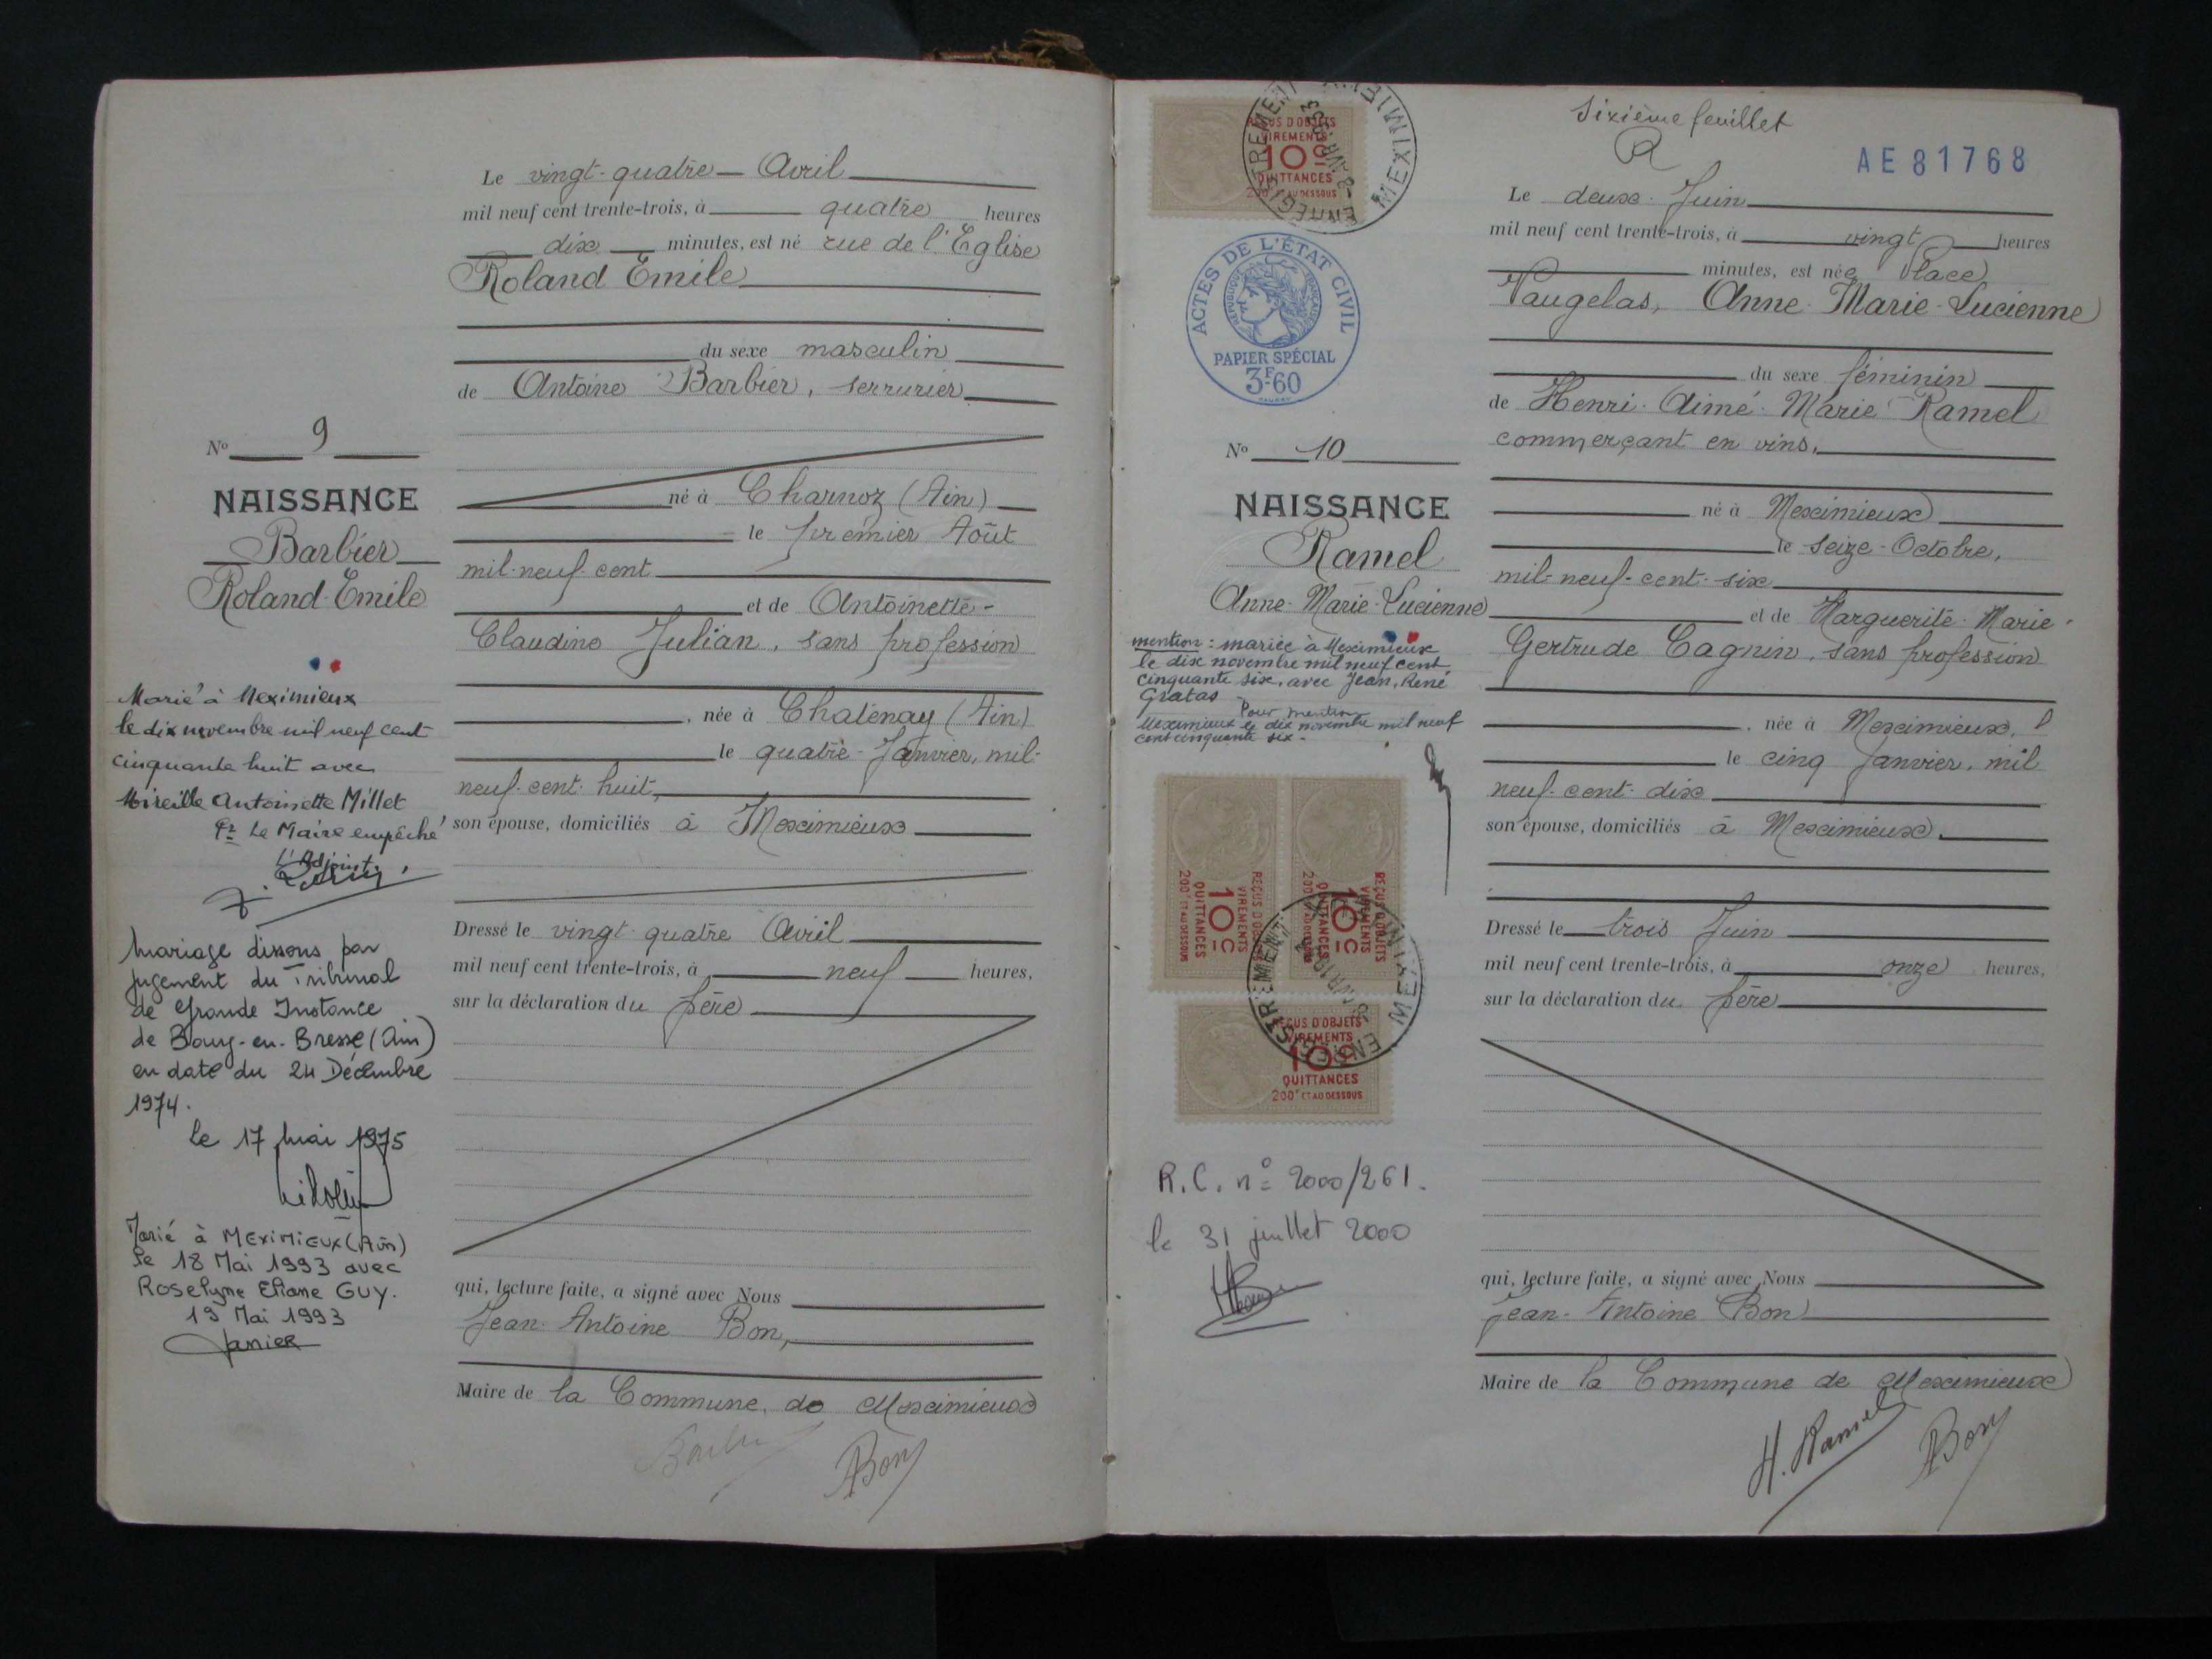 Le vingt-quatre Avril
mil neuf cent trente-trois, à quatre heures
dix minutes, est né rue de l'Eglise
Roland Emile
du sexe masculin
de Antoine Barbier, serrurier
né à Charnoz (Ain)
le premier Août
mil-neuf-cent
et de Antoinette-
Claudine Julian, sans profession
, née à Chatenay (Ain)
le quatre-Janvier, mil-
neuf-cent-huit,
son épouse, domiciliés à Meximieux
Dressé le vingt quatre Avril
mil neuf cent trente-trois, à neuf heures,
sur la déclaration du père
qui, lecture faite, a signé avec Nous
Jean-Antoine Bon,
Maire de la Commune de Meximieux
Bon
No 9
NAISSANCE
Barbier
Roland-Emile
Marié à Meximieux
le dix novembre mil neuf cent
cinquante huit avec
Mireille Antoinette Millet
Pr Le Maire empêché
L'Adjoint,
Mariage dissous par
jugement du Tribunal
de Grande Instance
de Bourg-en-Bresse (Ain)
en date du 24 Décembre
1974.
le 17 Mai 1975
Marié à MEXIMIEUX (Ain)
le 18 Mai 1993 avec
Roselyne Eliane GUY.
19 Mai 1993
Janier
REÇUS D'OBJETS
VIREMENTS
10c
QUITTANCES
200F ET AU DESSOUS
ENREGISTREMENT MEXIMIEUX
ACTES DE L'ÉTAT CIVIL
RÉPUBLIQUE FRANÇAISE
PAPIER SPÉCIAL
3F60
No 10
NAISSANCE
Ramel
Anne-Marie-Lucienne
mention : mariée à Meximieux
le dix novembre mil neuf cent
cinquante six, avec Jean, René
Gratas
Pour mention
Meximieux le dix novembre mil neuf
cent cinquante six -
REÇUS D'OBJETS
VIREMENTS
10c
QUITTANCES
200F ET AU DESSOUS
REÇUS D'OBJETS
VIREMENTS
10c
QUITTANCES
200F ET AU DESSOUS
ENREGISTREMENT MEXIMIEUX
REÇUS D'OBJETS
VIREMENTS
10c
QUITTANCES
200F ET AU DESSOUS
R.C. n° 2000/261.
le 31 juillet 2000
Sixième feuillet
R
AE 81768
Le deux Juin
mil neuf cent trente-trois, à vingt heures
minutes, est née Place
Vaugelas, Anne-Marie-Lucienne
du sexe féminin
de Henri-Aimé-Marie Ramel
commerçant en vins,
né à Meximieux
le seize-Octobre,
mil-neuf-cent-six
et de Marguerite-Marie-
Gertrude Cagnin, sans profession
, née à Meximieux,
le cinq Janvier, mil
neuf-cent-dix
son épouse, domiciliés à Meximieux.
Dressé le trois Juin
mil neuf cent trente-trois, à onze heures,
sur la déclaration du père
qui, lecture faite, a signé avec Nous
Jean-Antoine Bon
Maire de la Commune de Meximieux
H. Ramel Bon